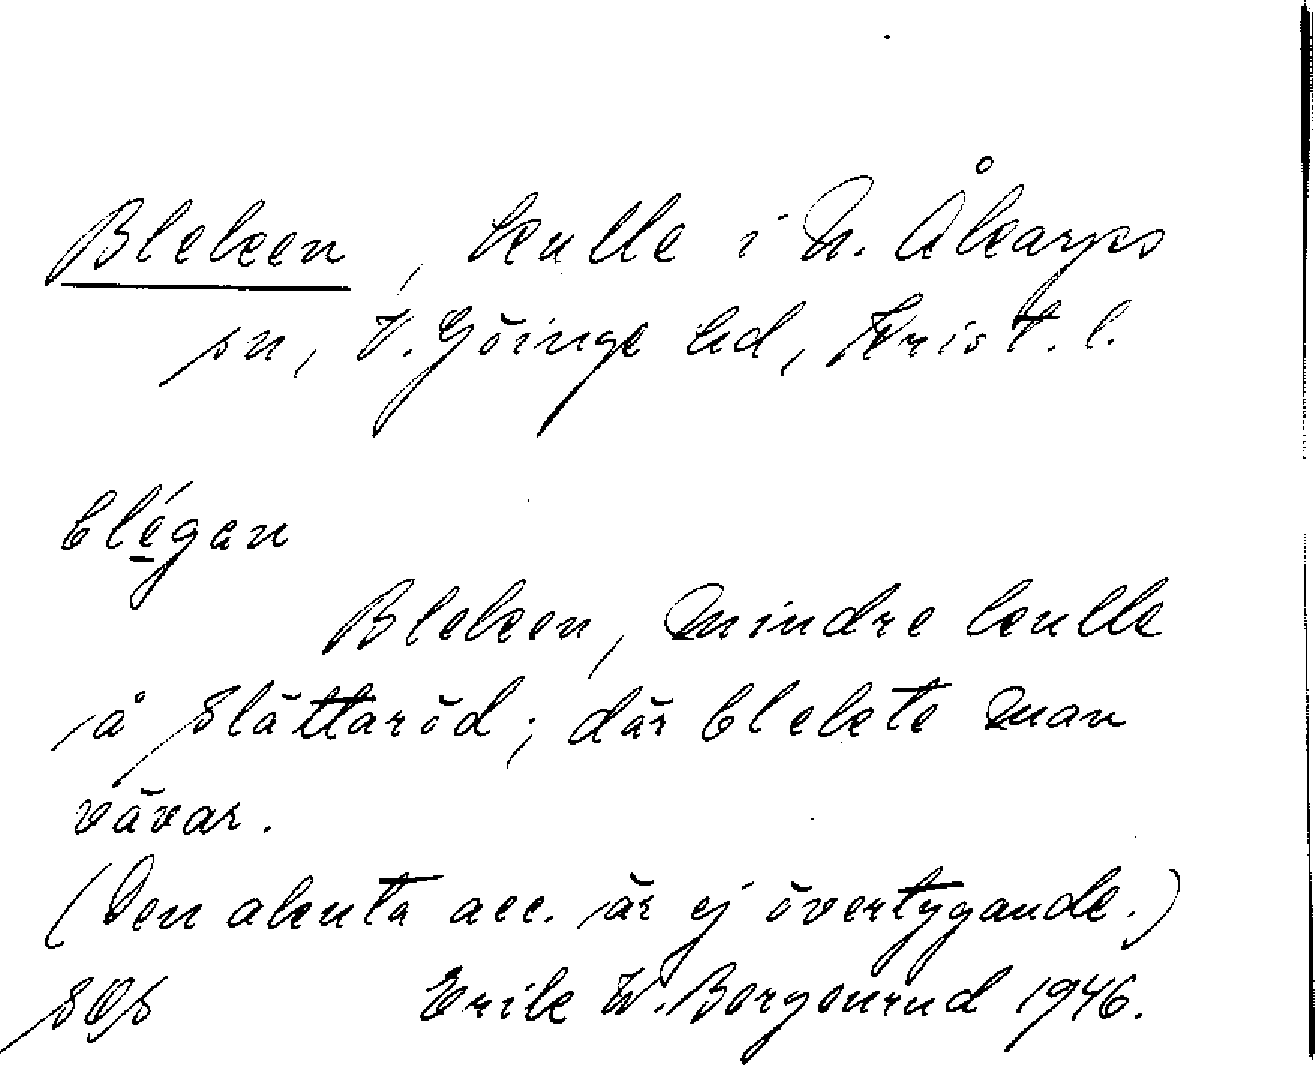 Bleken, kulle i N. Åkarps
sn, V. Göinge hd, Krist. l.
blégan
Bleken, mindre kulle
å Slättaröd; där blekte man
vävar.
(Den akuta acc. är ej övertygande.)
SOS Erik W. Bergenrud 1946.